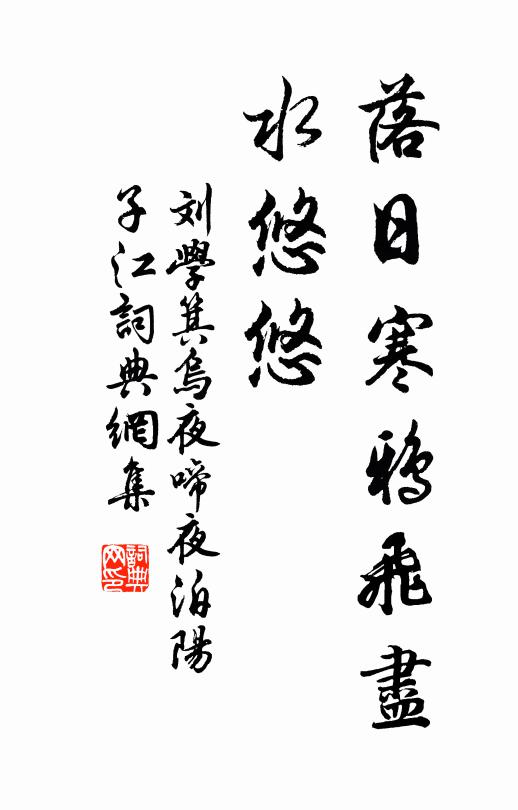 落日寒鴉飛盡
水悠悠
刘學箕烏夜啼夜泊陽
子江詞典網集
詞典
网印